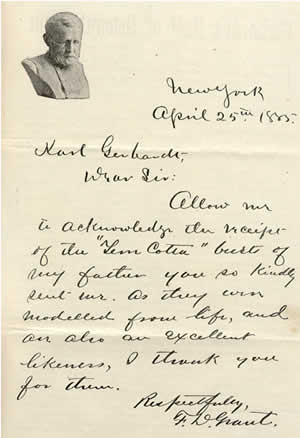 New York
April 25th 1885.
Karl Gerhardt,
Dear Sir:
Allow me
to acknowledge the receipt
of the "Terra Cotta" bust of
my father you so kindly
sent me. As they were
modelled from life, and
are also an excellent
likeness, I thank you
for them.
Respectfully,
F. D. Grant.